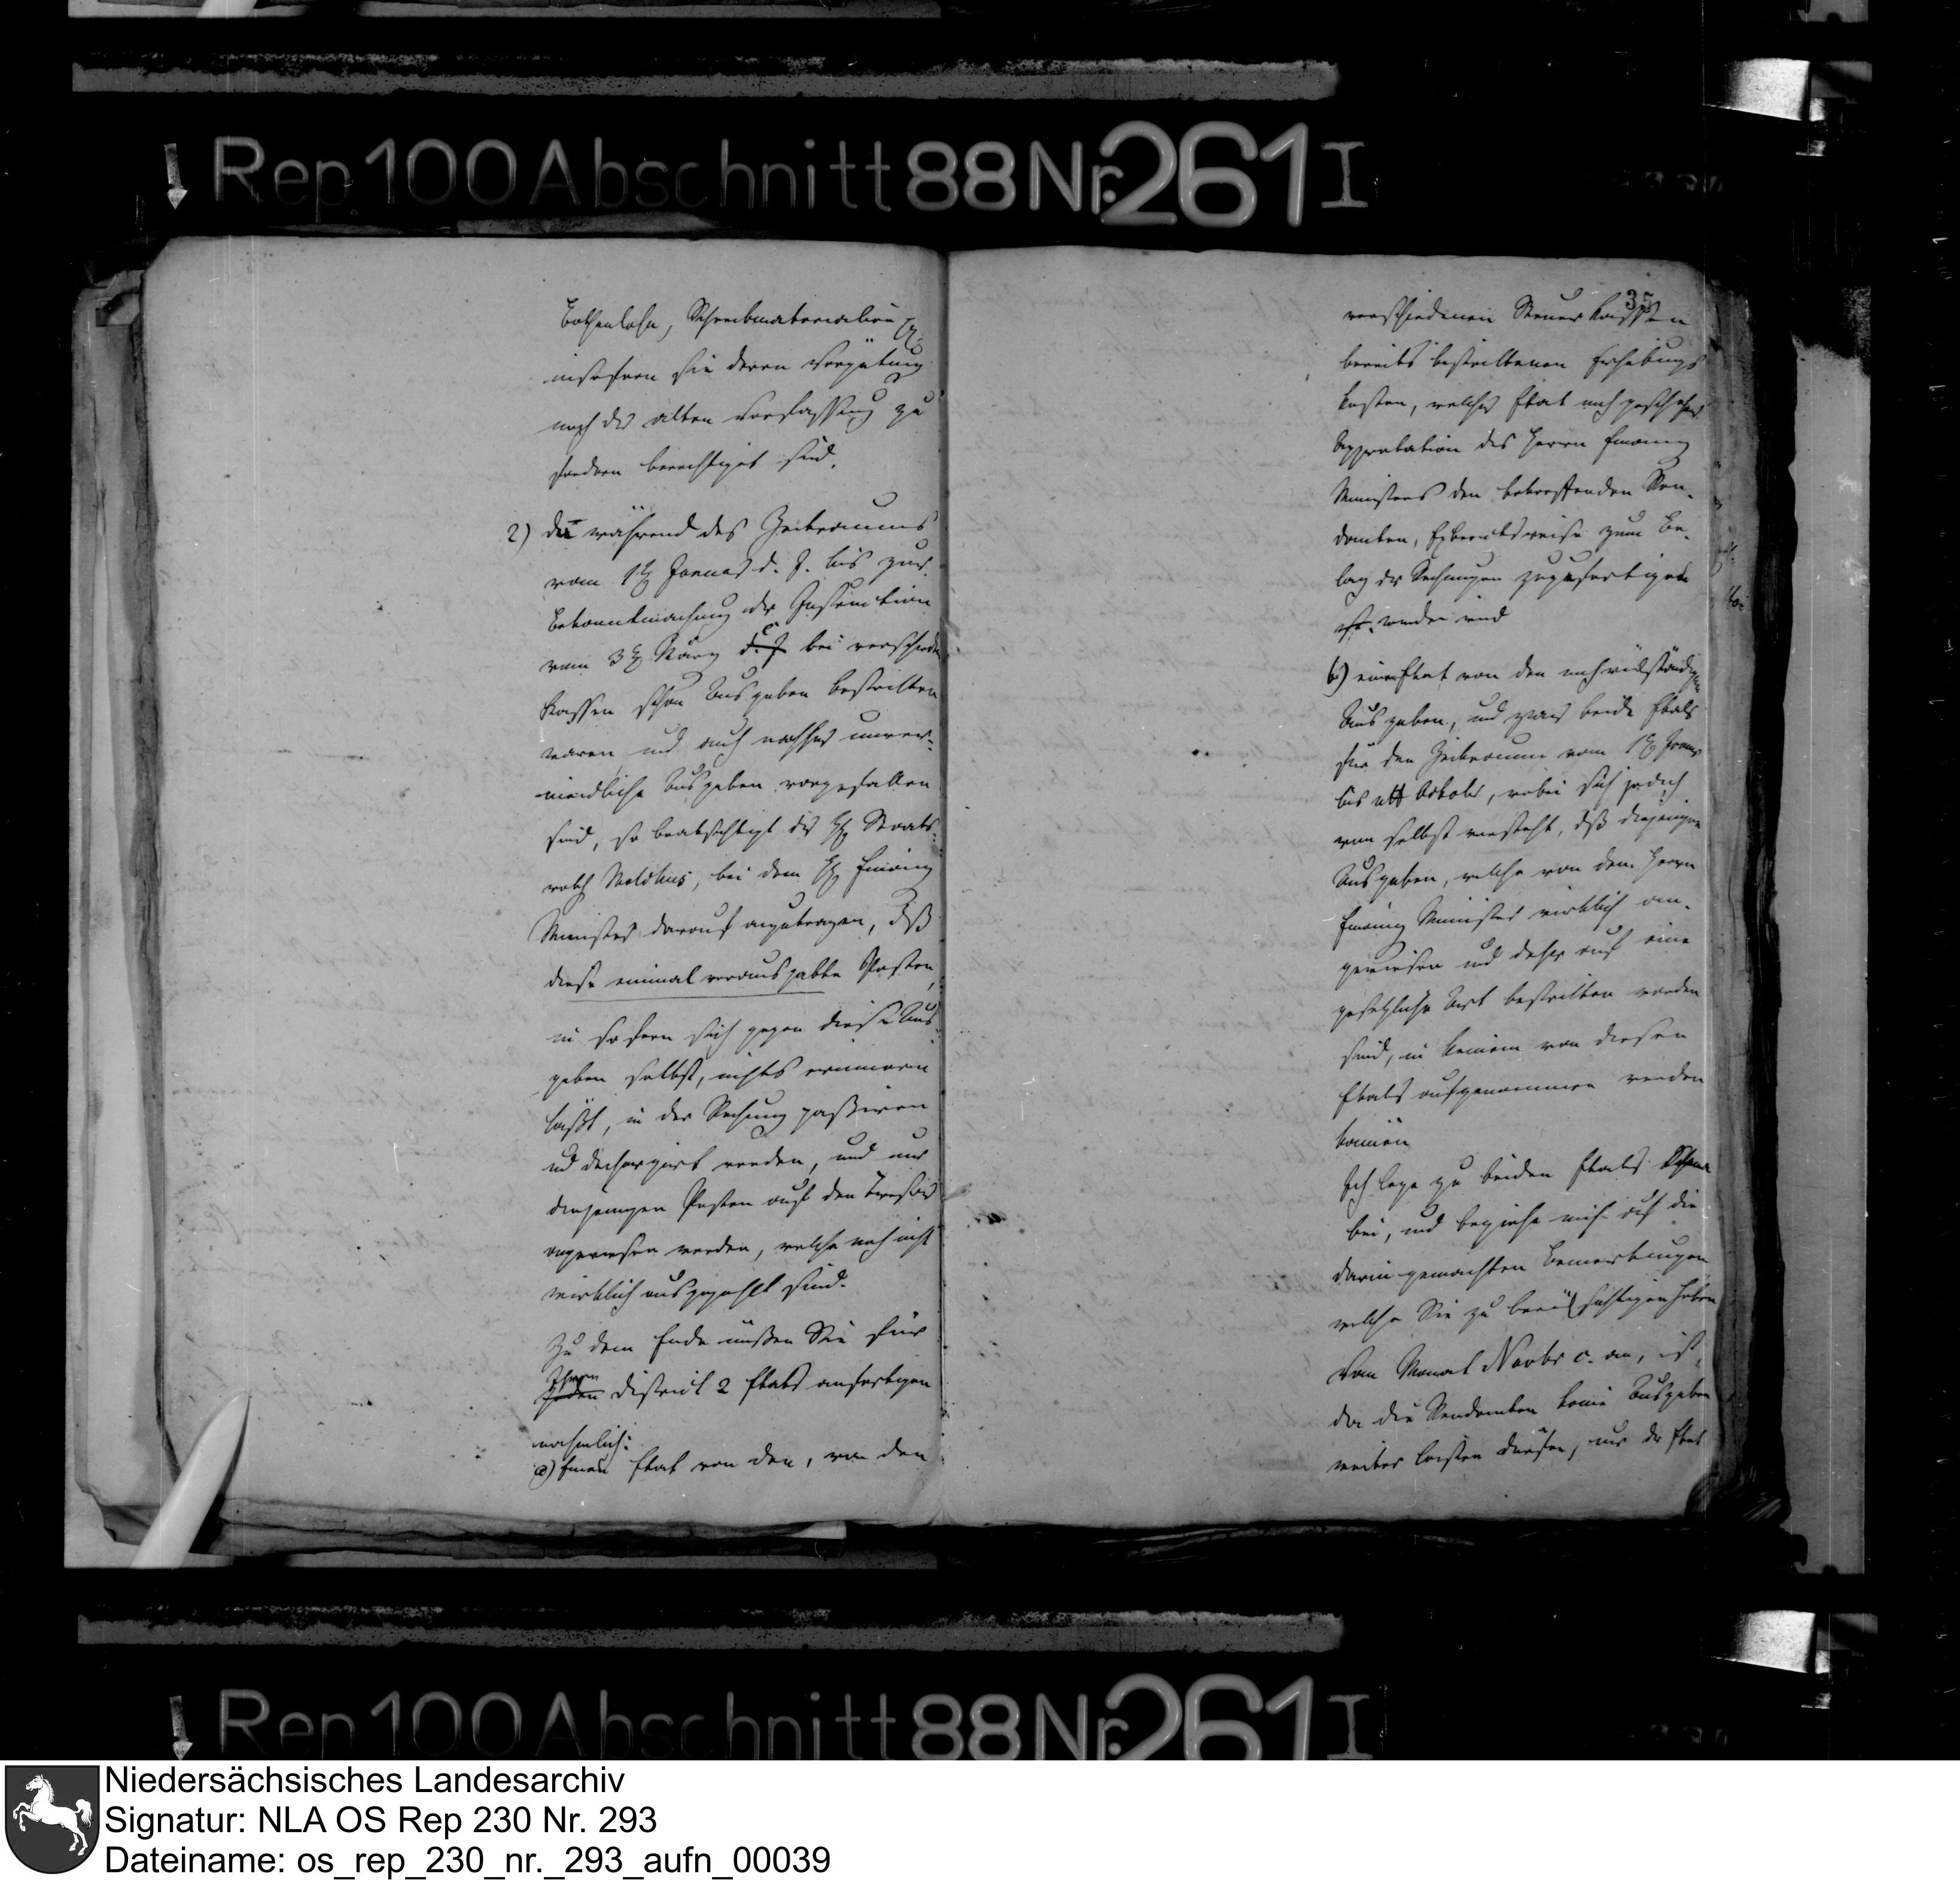 Rep. 100 Abschnitt 88 Nr. 261 I
Bothenlohn, Schreibmaterialien
insofern sie deren Vergütung
nach der alten Verfassung zu
fordern berechtiget sind.
2) da während des Zeitraums
vom 1ten Januar d. J. bis zur
Bekanntmachung der Instruction
vom 3ten März d. J. bei verschiedn
Kassen schon Ausgaben bestritten
waren und auch nachher unver-
meidliche Ausgaben vorgefallen
sind, so beabsichtigt der H Staats-
rath Malchus, bei dem H Finanz
Minister darauf anzutragen, daß
diese einmal verausgabte Posten,
in sofern sich gegen diese Aus-
gaben selbst, nichts erinnern
läßt, in der Rechnung paßiren
und dechargirt werden, und nur
diejenigen Posten auf den Tresor
angewiesen werden, welche noch nicht
wirklich ausgezahlt sind.
Zu dem Ende müßen Sie für
Ihren
Jeden District 2 Etats anfertigen
nahmlich:
a) Einen Etat von den, von den
35
verschiedenen Steuer Kassen
bereits bestrittenen Erhebungs
kosten, welcher Etat nach geschehener
Approbation des Herrn Finanz
Ministers den betreffenden Ren-
danten, Extractsweise zum Be-
lag der Rechnungen zuzufertigen
ist. und
b) einen Etat von den noch rückständigen
Ausgaben, und zwar beide Etats
für den Zeitraum vom 1ten Januar
bis ult October, wobei sich jedoch
von selbst versteht, daß diejenigen
Ausgaben, welche von dem Herrn
Finanz Minister wirklich an-
gewiesen und daher auf eine
gesetzliche Art bestritten worden
sind, in keinem von diesen
Etats aufgenommen werden
können
Ich lege zu beiden Etats Schema
bei, und beziehe mich auf die
darin gemachten Bemerkungen
welche Sie zu berücksichtigen haben
Vom Monat Novbr c. an, ist,
da die Rendanten keine Ausgaben
weiter leisten dürfen, nur der Etat
Rep 100 Abschnitt 88 Nr. 261 I
Niedersächsisches Landesarchiv
Signatur: NLA OS Rep 230 Nr. 293
Dateiname: os_rep_230_nr._293_aufn_00039